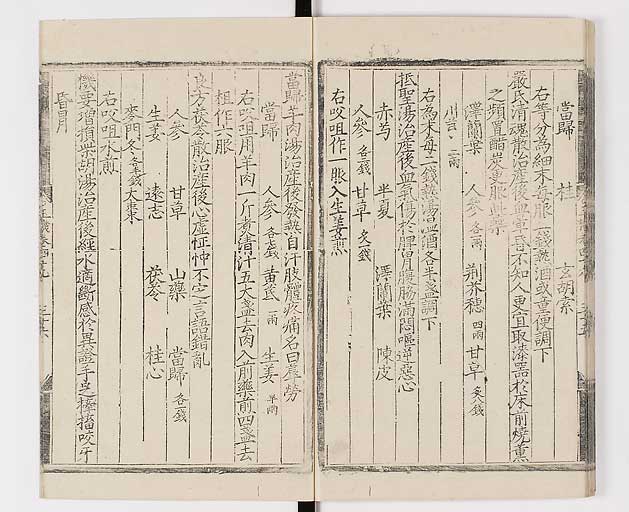 當歸 桂 玄胡索
右等分為細末每服二錢熱酒或童便調下
嚴氏清魂散治產後血暈昏不知人更宜取漆器於床前燒薰
之頻置醋炭更服此藥
澤蘭葉 人參 各一兩 荆芥穗 四兩 甘草 炙八錢
川芎 二兩
右為末每二錢熱湯温酒各半盞調下
抵聖湯治產後血氣傷於脾胃腹脇滿悶嘔逆惡心
赤芍 半夏 澤蘭葉 陳皮
人參 各二錢 甘草 炙一錢
右㕮咀作一服入生姜煎
當歸羊肉湯治產後發熱自汗肢體疼痛名曰蓐勞
當歸 人參 各七錢 黃芪 一兩 生姜 半兩
右㕮咀用羊肉一斤煮清汁五大盞去肉入前藥煎四盞去
柤作六服
良方茯苓散治產後心虛怔忡不定言語錯亂
人參 甘草 山藥 當歸 各一錢
生姜 遠志 茯苓 桂心
麥門冬 各五錢 大棗
右㕮咀水煎
機要增損柴胡湯治產後經水適斷感於異證手足搐搦咬牙
昏冒